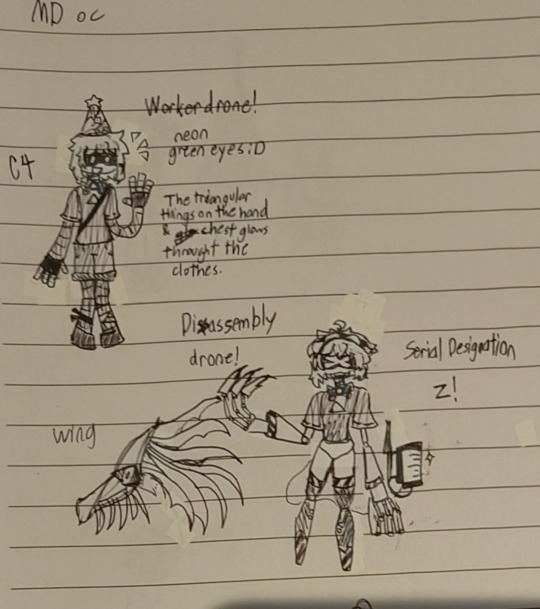 MD oc
Workerdrone!
neon
green eyes :D
C4
The triangular
things on the hand
& chest glows
throught the
clothes.
Disassembly
drone!
Serial Designation
Z!
wing